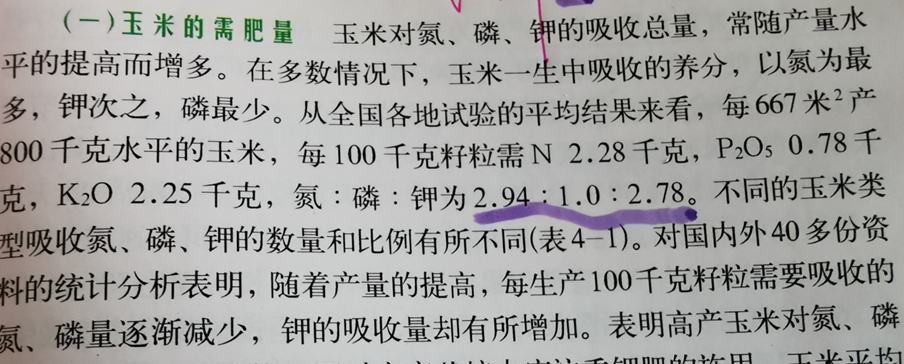 (一)玉米的需肥量 玉米对氮、磷、钾的吸收总量，常随产量水
平的提高而增多。在多数情况下，玉米一生中吸收的养分，以氮为最
多，钾次之，磷最少。从全国各地试验的平均结果来看，每667米²产
800千克水平的玉米，每100千克籽粒需N 2.28千克，P₂O₅ 0.78千
克，K₂O 2.25千克，氮：磷：钾为2.94：1.0：2.78。不同的玉米类
型吸收氮、磷、钾的数量和比例有所不同(表4-1)。对国内外40多份资
料的统计分析表明，随着产量的提高，每生产100千克籽粒需要吸收的
氮、磷量逐渐减少，钾的吸收量却有所增加。表明高产玉米对氮、磷